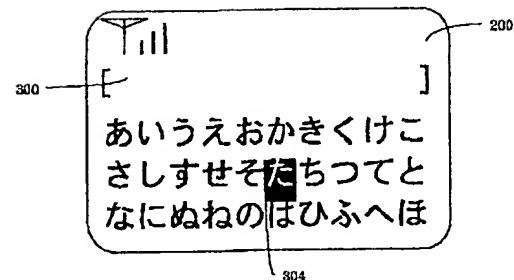 200
300 [ ]
あいうえおかきくけこ
さしすせそたちつてと
なにぬねのはひふへほ
304